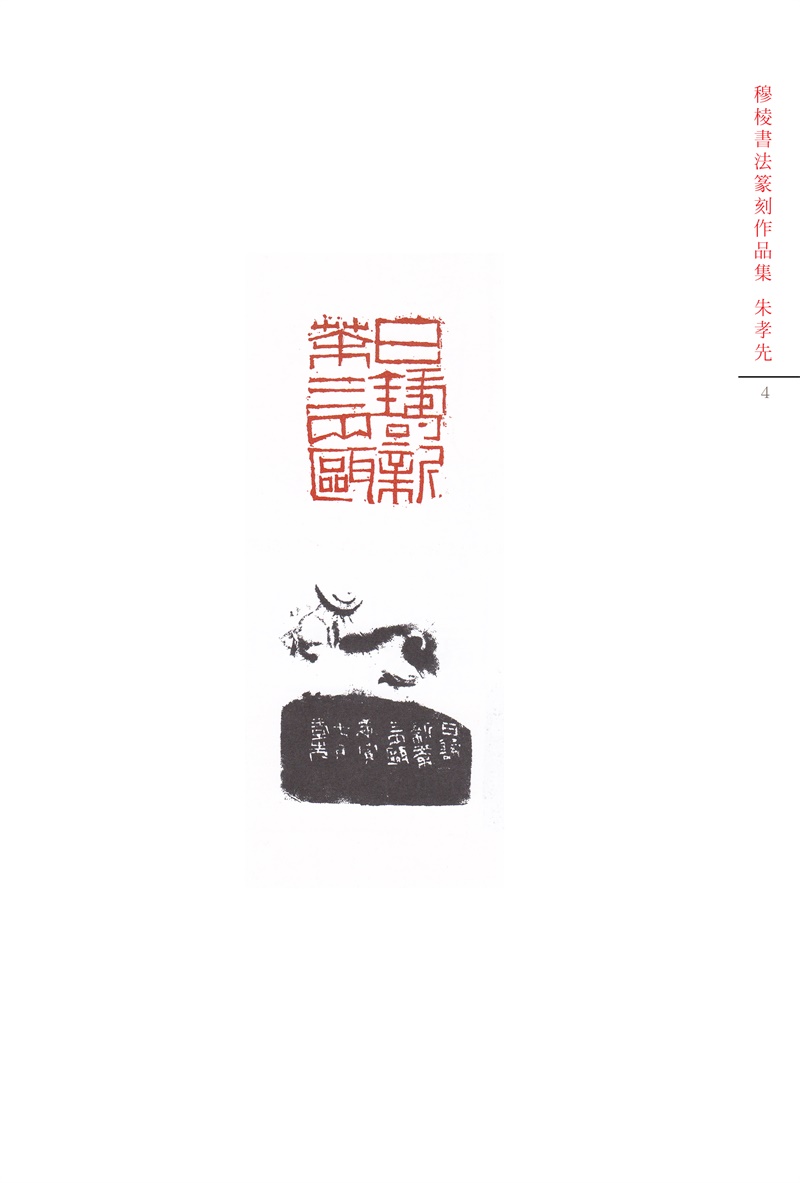 穆棱書法篆刻作品集 朱孝先
4
日鑄新
茶三四甌
日鑄
新茶
三四甌
庚寅
七月